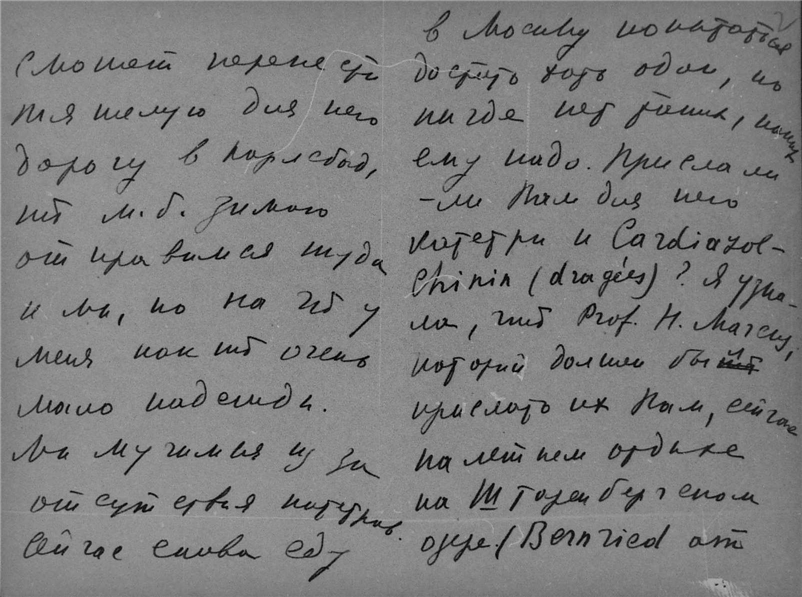 сможет перенести
тяжелую для него
дорогу в Карлсбад,
что м. б. зимою
отправимся туда
и мы, но на что у
меня как то очень
мало надежды.
Мы мучимся из за
отсутствия катетров.
Сейчас снова еду
в Москву попытаться
достать хоть один, но
нигде нет таких, каких
ему надо. Прислали
-ли Вам для него
катетры и Cardiazol-
Chinin (dragées)? Я узна-
ла, что Prof. H. Marcus,
который должен был
прислать их Вам, сейчас
на летнем отдыхе
на Штаренбергском
озере. (Bernried am